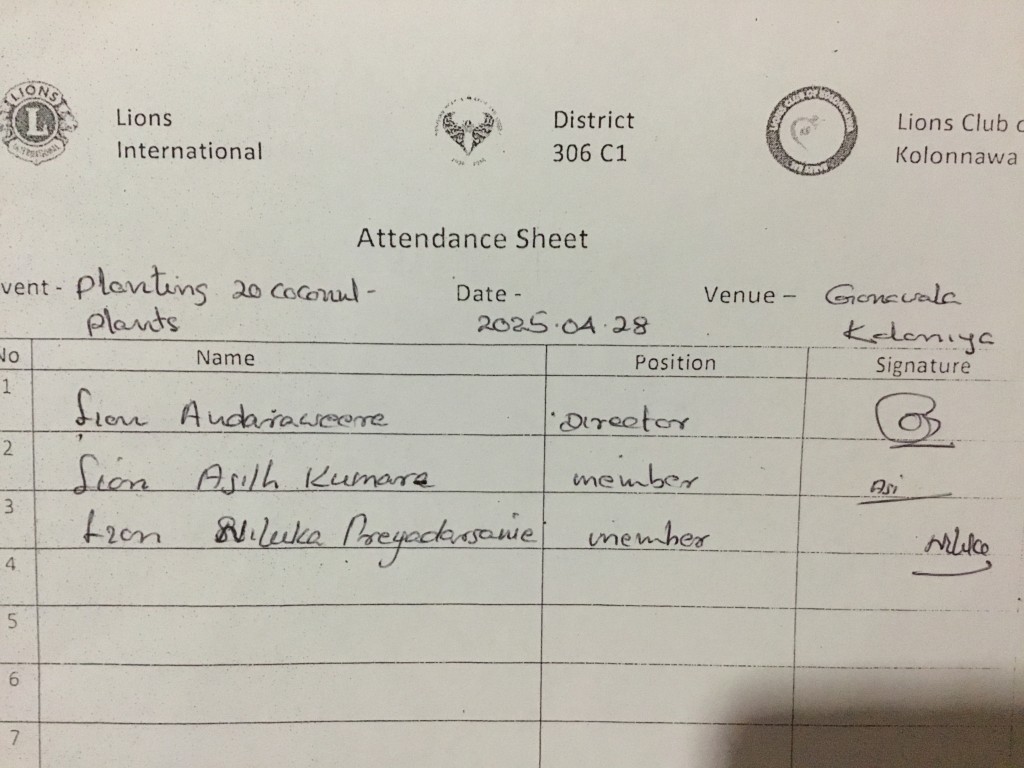 LIONS
L
INTERNATIONAL
Lions
International
District
306 C1
Lions Club
Kolonnawa
Attendance Sheet
vent - Planting 20 coconut - Date - Venue - Gonawala
plants 2025.04.28 Kelaniya
No Name Position Signature
1 Lion Andaraweera Director
2 Lion Asith Kumara member Asi
3 Lion Niluka Preyadarsanie member Niluka
4
5
6
7